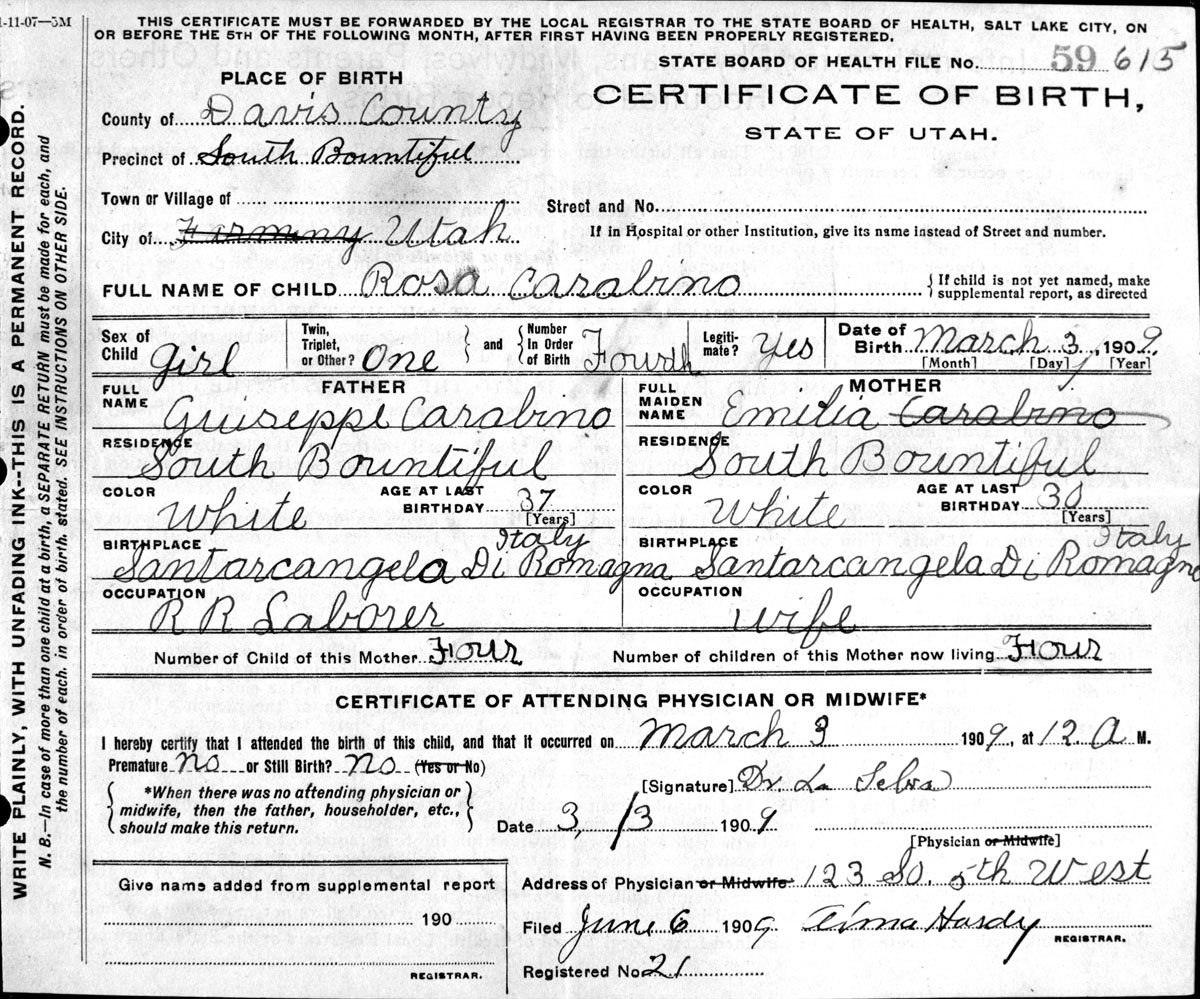 1-11-07—5M
THIS CERTIFICATE MUST BE FORWARDED BY THE LOCAL REGISTRAR TO THE STATE BOARD OF HEALTH, SALT LAKE CITY, ON
OR BEFORE THE 5TH OF THE FOLLOWING MONTH, AFTER FIRST HAVING BEEN PROPERLY REGISTERED.
STATE BOARD OF HEALTH FILE No. 59 615
PLACE OF BIRTH
CERTIFICATE OF BIRTH,
STATE OF UTAH.
County of Davis County
Precinct of South Bountiful
Town or Village of
Street and No.
City of Farminy Utah
If in Hospital or other Institution, give its name instead of Street and number.
FULL NAME OF CHILD Rosa Carabino
{ If child is not yet named, make
supplemental report, as directed
Sex of Child Girl
Twin, Triplet, or Other? One } and { Number In Order of Birth Fourth
Legiti-mate? Yes
Date of Birth March 3, 1909.
[Month] [Day] [Year]
FATHER
FULL NAME Guiseppi Carabino
RESIDENCE South Bountiful
COLOR White
AGE AT LAST BIRTHDAY 37
[Years]
BIRTHPLACE Santarcangela Di Romagna Italy
OCCUPATION R R Laborer
MOTHER
FULL MAIDEN NAME Emilia Carabino
RESIDENCE South Bountiful
COLOR White
AGE AT LAST BIRTHDAY 30
[Years]
BIRTHPLACE Santarcangela Di Romagna Italy
OCCUPATION Wife
Number of Child of this Mother Four
Number of children of this Mother now living Four
CERTIFICATE OF ATTENDING PHYSICIAN OR MIDWIFE*
I hereby certify that I attended the birth of this child, and that it occurred on March 3 1909, at 12 A M.
Premature No or Still Birth? No (Yes or No)
{ *When there was no attending physician or
midwife, then the father, householder, etc.,
should make this return. }
[Signature] Dr. La Selva
Date 3, /3 1909
[Physician or Midwife]
Address of Physician or Midwife 123 So. 5th West
Filed June 6 1909. Alma Hardy
REGISTRAR.
Registered No 21
Give name added from supplemental report
190
REGISTRAR.
WRITE PLAINLY, WITH UNFADING INK--THIS IS A PERMANENT RECORD.
N. B.—In case of more than one child at a birth, a SEPARATE RETURN must be made for each, and
the number of each, in order of birth, stated. SEE INSTRUCTIONS ON OTHER SIDE.